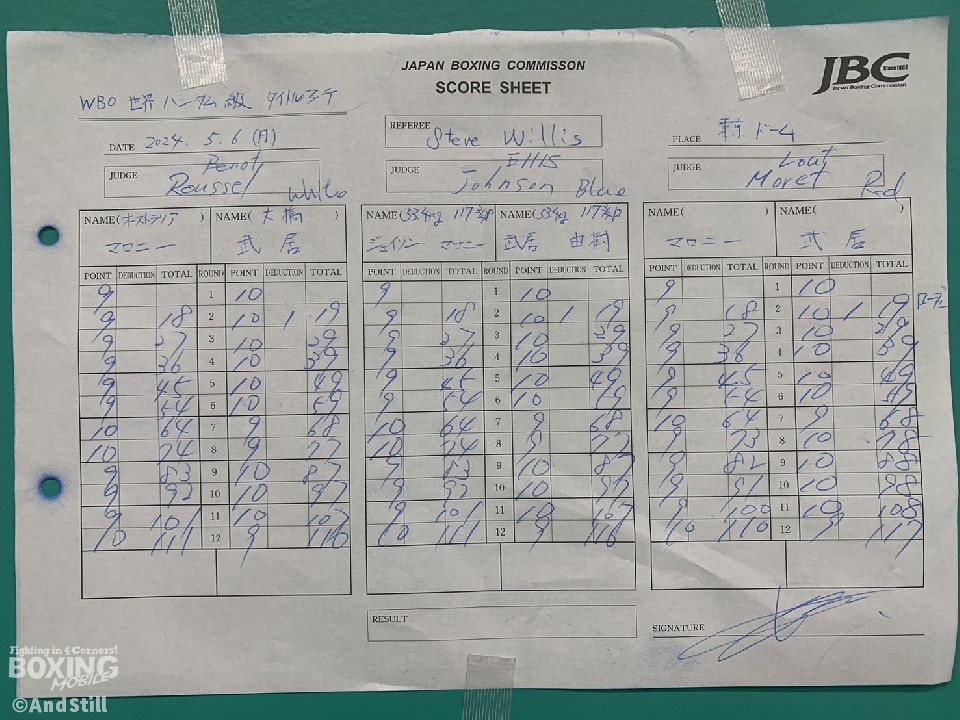 JAPAN BOXING COMMISSON
SCORE SHEET
JBC
Since1952
Japan Boxing Commission
WBO 世界バンタム級 タイトルマッチ
DATE 2024. 5. 6 (月)
REFEREE Steve Willis
PLACE 東京ドーム
JUDGE Benoit Roussel White
JUDGE Ellis Johnson Blue
JUDGE Moret Red
NAME(オーストラリア) マロニー NAME(大橋) 武居
NAME( 53.4kg 117 3/4 P ジェイソン・マロニー NAME( 53.4kg 117 3/4 P 武居 由樹
NAME( ) マロニー NAME( ) 武居
POINT DEDUCTION TOTAL ROUND POINT DEDUCTION TOTAL POINT DEDUCTION TOTAL ROUND POINT DEDUCTION TOTAL POINT DEDUCTION TOTAL ROUND POINT DEDUCTION TOTAL
9 1 10 9 1 10 9 1 10
9 18 2 10 1 19 9 18 2 10 1 19 9 18 2 10 1 19 ローブロー
9 27 3 10 29 9 27 3 10 29 9 27 3 10 29
9 36 4 10 39 9 36 4 10 39 9 36 4 10 39
9 45 5 10 49 9 45 5 10 49 9 45 5 10 49
9 54 6 10 59 9 54 6 10 59 9 54 6 10 59
10 64 7 9 68 10 64 7 9 68 10 64 7 9 68
10 74 8 9 77 10 74 8 9 77 9 73 8 10 78
9 83 9 10 87 9 83 9 10 87 9 82 9 10 88
9 92 10 10 97 9 92 10 10 97 9 91 10 10 98
9 101 11 10 107 9 101 11 10 107 9 100 11 10 108
10 111 12 9 116 10 111 12 9 116 10 110 12 9 117
RESULT
SIGNATURE
Fighting in 4 Corners!
BOXING
MOBILE
©AndStill